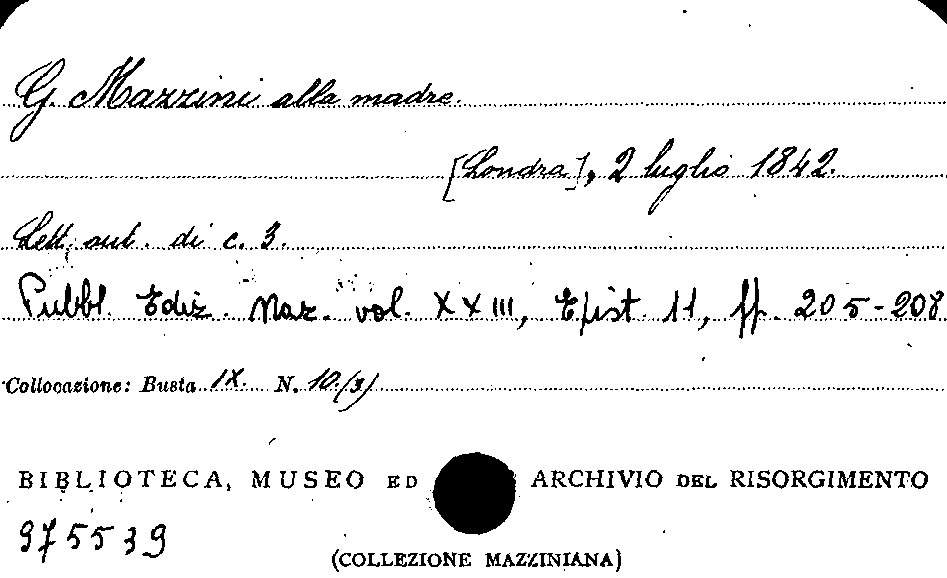 G. Mazzini alla madre.
[Londra], 2 luglio 1842.
Lett. aut. di c. 3.
Pubbl. Ediz. Naz. vol. XXIII, Epist. 11, ff. 205-208
Collocazione: Busta IX. N. 10.(3)
BIBLIOTECA, MUSEO ED ARCHIVIO DEL RISORGIMENTO
975539
(COLLEZIONE MAZZINIANA)